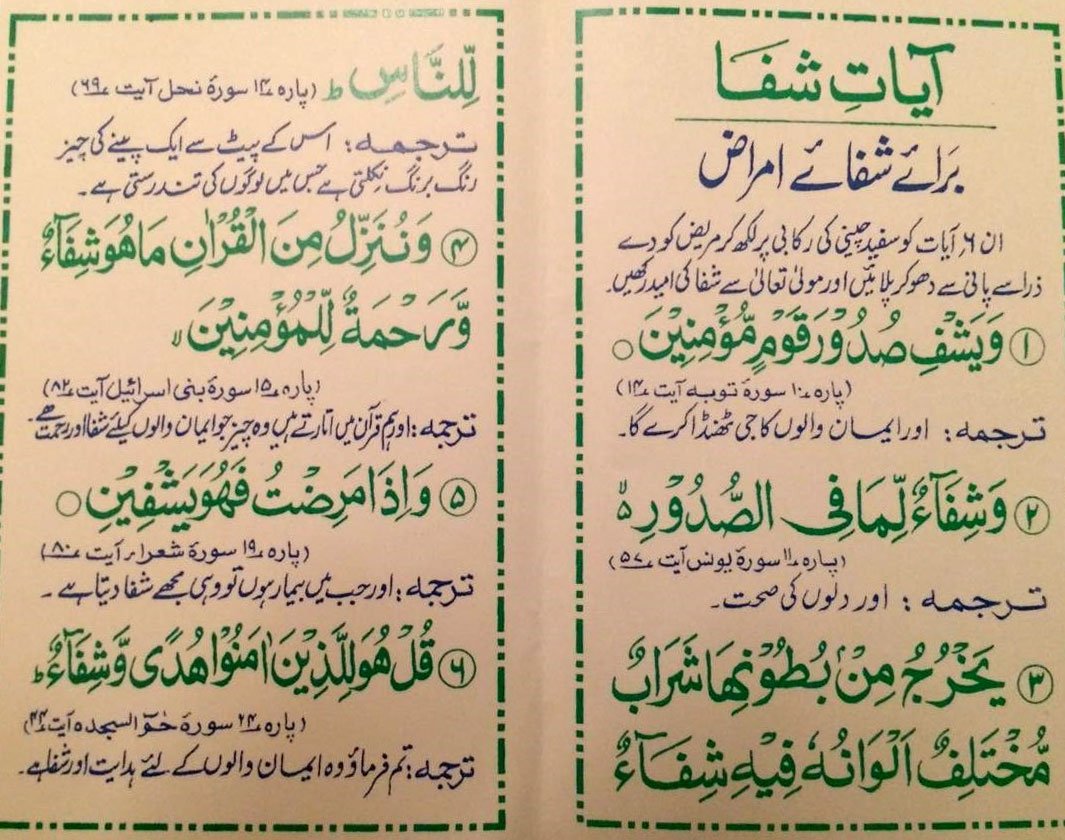 آیاتِ شفا
برائے شفائے امراض
ان ۶ آیات کو سفید چینی کی رکابی پر لکھ کر مریض کو دے
ذرا سے پانی سے دھو کر پلائیں اور مولیٰ تعالیٰ سے شفا کی امید رکھیں۔
① وَيَشْفِ صُدُوْرَ قَوْمٍ مُّؤْمِنِيْنَ ○
(پارہ ۱۰ سورۃ توبہ آیت ۱۴)
ترجمہ: اور ایمان والوں کا جی ٹھنڈا کرے گا۔
② وَشِفَآءٌ لِّمَا فِى الصُّدُوْرِ ۵ۙ
(پارہ ۱۱ سورۃ یونس آیت ۵۷)
ترجمہ: اور دلوں کی صحت۔
③ يَخْرُجُ مِنْۢ بُطُوْنِهَا شَرَابٌ
مُّخْتَلِفٌ اَلْوَانُهٗ فِيْهِ شِفَآءٌ
لِّلنَّاسِ ؕ (پارہ ۱۴ سورۃ نحل آیت ۶۹)
ترجمہ: اس کے پیٹ سے ایک پینے کی چیز
رنگ برنگ نکلتی ہے جس میں لوگوں کی تندرستی ہے۔
④ وَنُنَزِّلُ مِنَ الْقُرْاٰنِ مَا هُوَ شِفَآءٌ
وَّرَحْمَةٌ لِّلْمُؤْمِنِيْنَ ۙ
(پارہ ۱۵ سورۃ بنی اسرائیل آیت ۸۲)
ترجمہ: اور ہم قرآن میں اتارتے ہیں وہ چیز جو ایمان والوں کیلئے شفا اور رحمت ہے۔
⑤ وَاِذَا مَرِضْتُ فَهُوَ يَشْفِيْنِ ○
(پارہ ۱۹ سورۃ شعراء آیت ۸۰)
ترجمہ: اور جب میں بیمار ہوں تو وہی مجھے شفا دیتا ہے۔
⑥ قُلْ هُوَ لِلَّذِيْنَ اٰمَنُوْا هُدًى وَّشِفَآءٌ ؕ
(پارہ ۲۴ سورۃ حٰمٓ السجدہ آیت ۴۴)
ترجمہ: تم فرماؤ وہ ایمان والوں کے لئے ہدایت اور شفا ہے۔